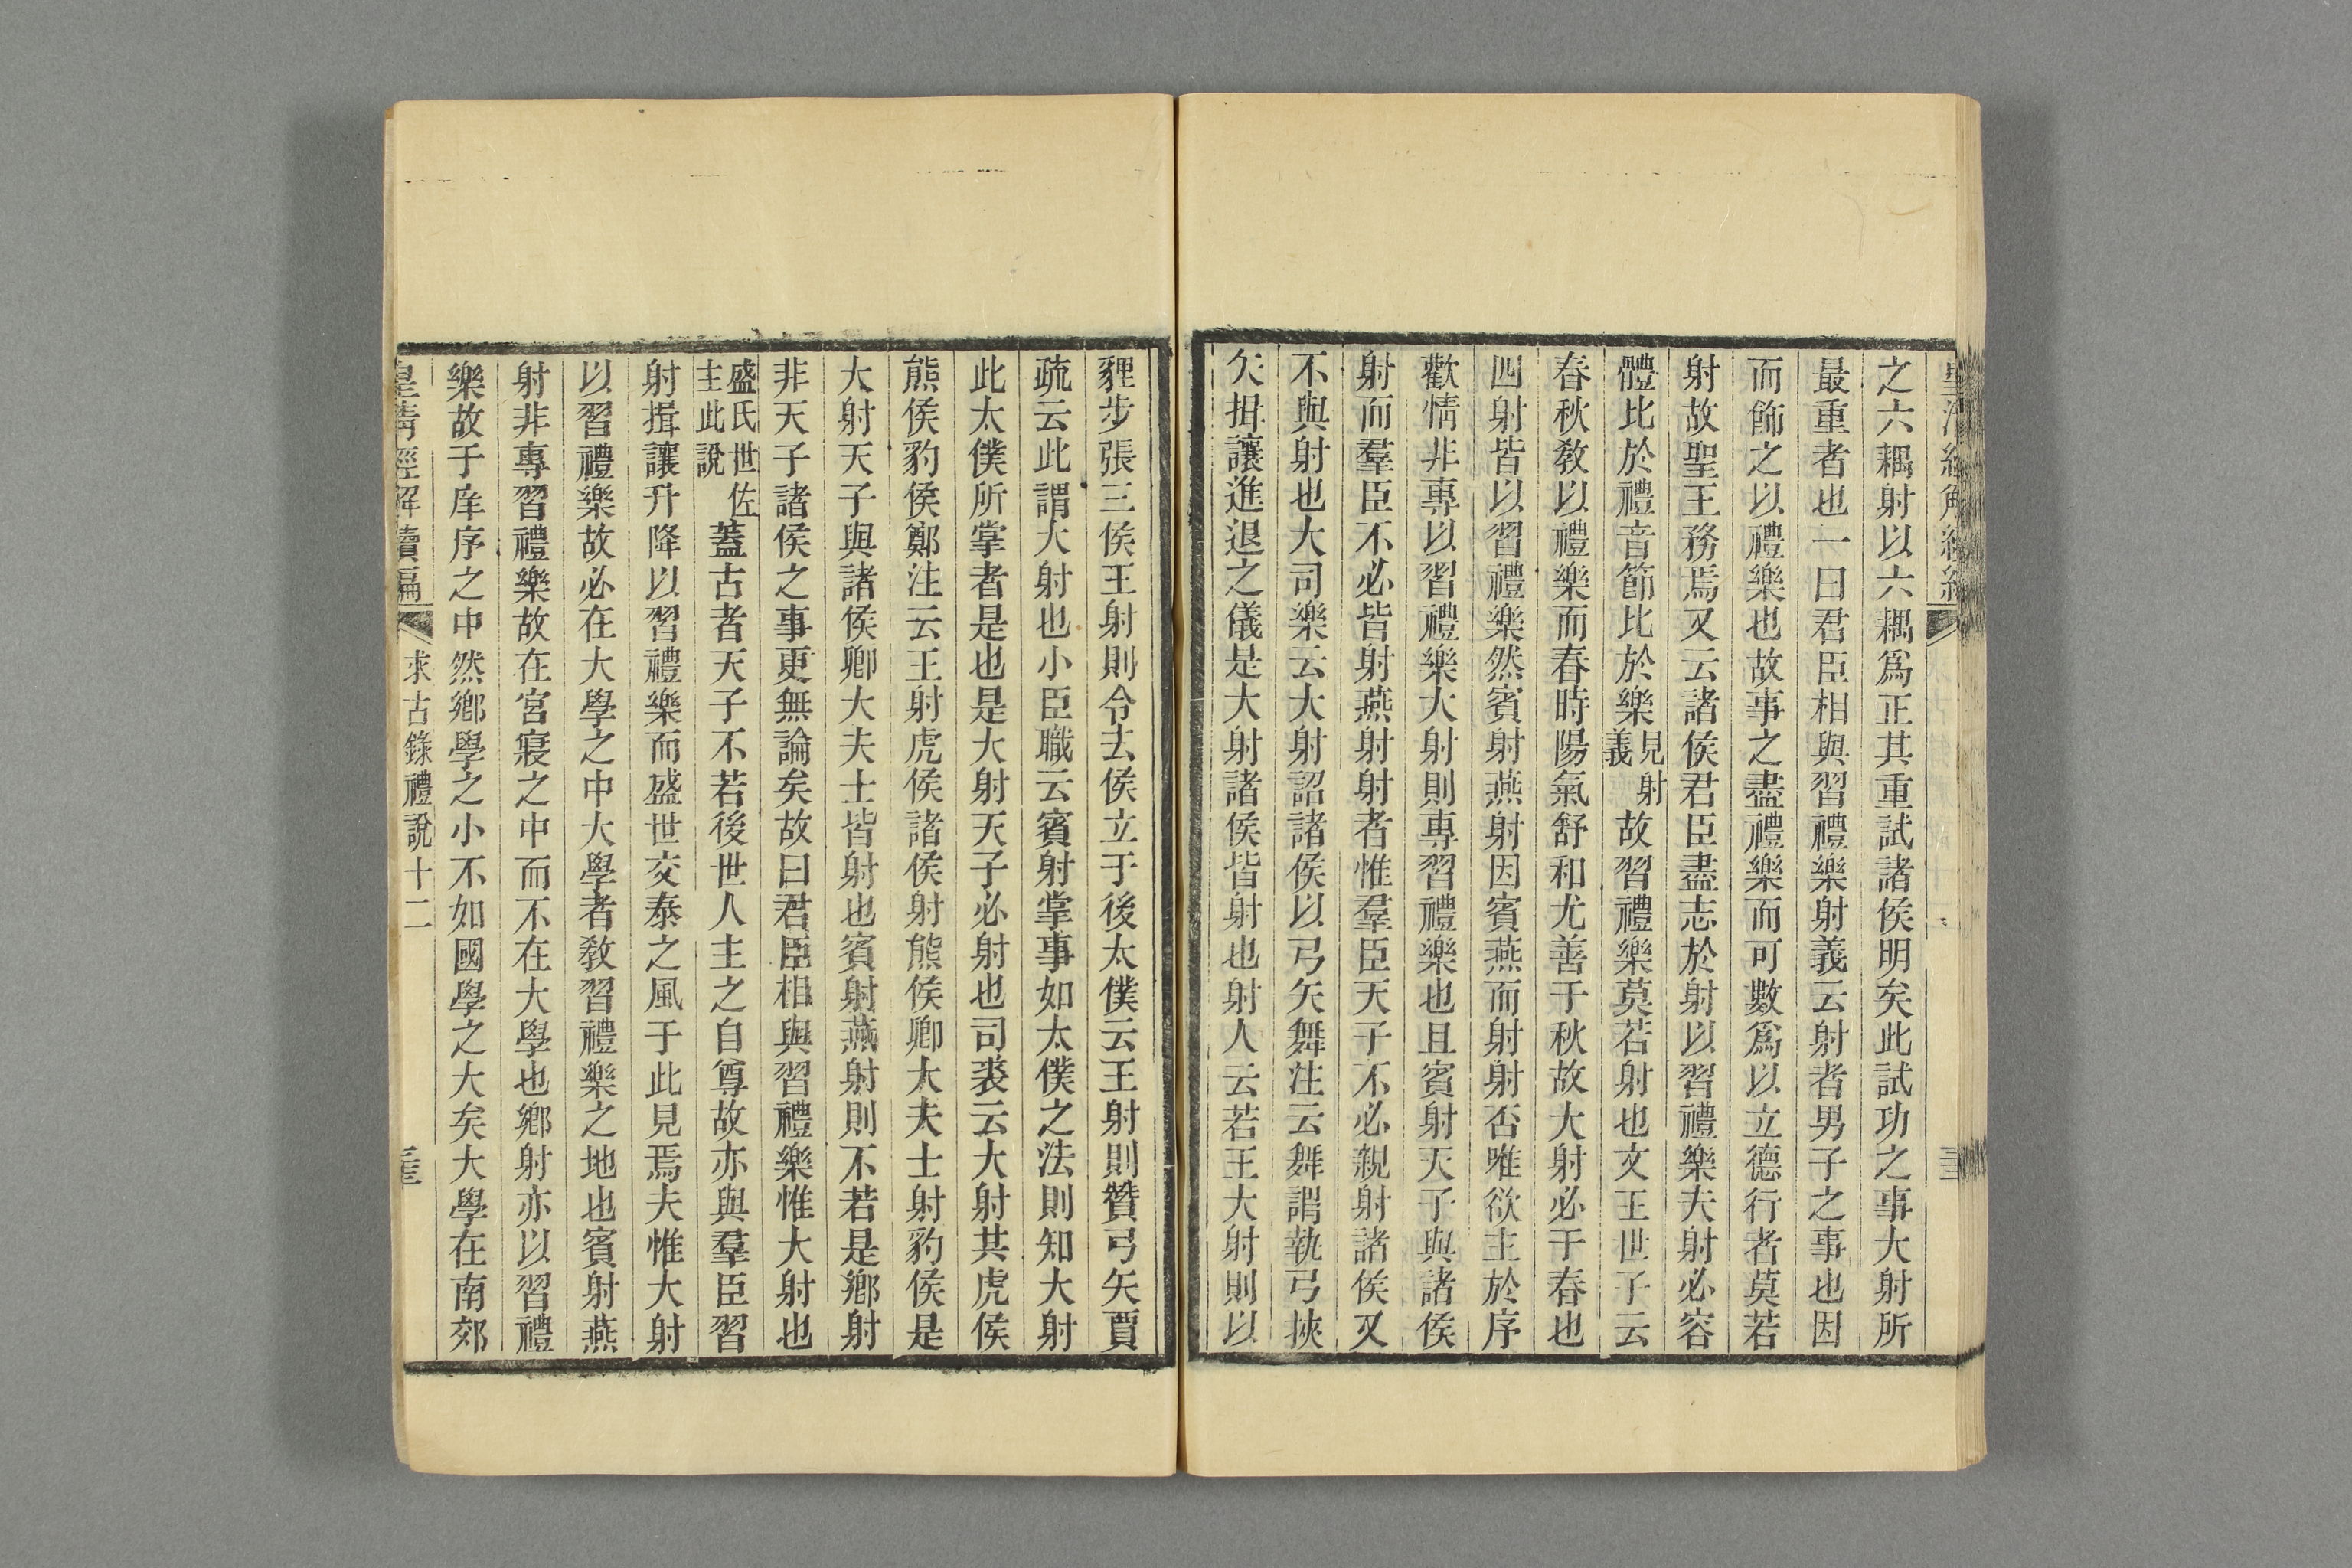 之六耦射以六耦爲正其重試諸侯明矣此試功之事大射所
最重者也一曰君臣相與習禮樂射義云射者男子之事也因
而飾之以禮樂也故事之盡禮樂而可數爲以立德行者莫若
射故聖王務焉又云諸侯君臣盡志於射以習禮樂夫射必容
體比於禮音節比於樂見射義故習禮樂莫若射也文王世子云
春秋敎以禮樂而春時陽氣舒和尤善于秋故大射必于春也
四射皆以習禮樂然賓射燕射因賓燕而射射否唯欲主於序
歡情非專以習禮樂大射則專習禮樂也且賓射天子與諸侯
射而羣臣不必皆射燕射射者惟羣臣天子不必親射諸侯又
不與射也大司樂云大射詔諸侯以弓矢舞注云舞謂執弓挾
矢揖讓進退之儀是大射諸侯皆射也射人云若王大射則以
貍步張三侯王射則令去侯立于後太僕云王射則贊弓矢賈
疏云此謂大射也小臣職云賓射掌事如太僕之法則知大射
此太僕所掌者是也是大射天子必射也司裘云大射共虎侯
熊侯豹侯鄭注云王射虎侯諸侯射熊侯卿大夫士射豹侯是
大射天子與諸侯卿大夫士皆射也賓射燕射則不若是鄉射
非天子諸侯之事更無論矣故曰君臣相與習禮樂惟大射也
盛氏世佐主此說蓋古者天子不若後世人主之自尊故亦與羣臣習
射揖讓升降以習禮樂而盛世交泰之風于此見焉夫惟大射
以習禮樂故必在大學之中大學者敎習禮樂之地也賓射燕
射非專習禮樂故在宮寢之中而不在大學也鄉射亦以習禮
樂故于庠序之中然鄉學之小不如國學之大矣大學在南郊
皇淸經解續編 求古錄禮說十二